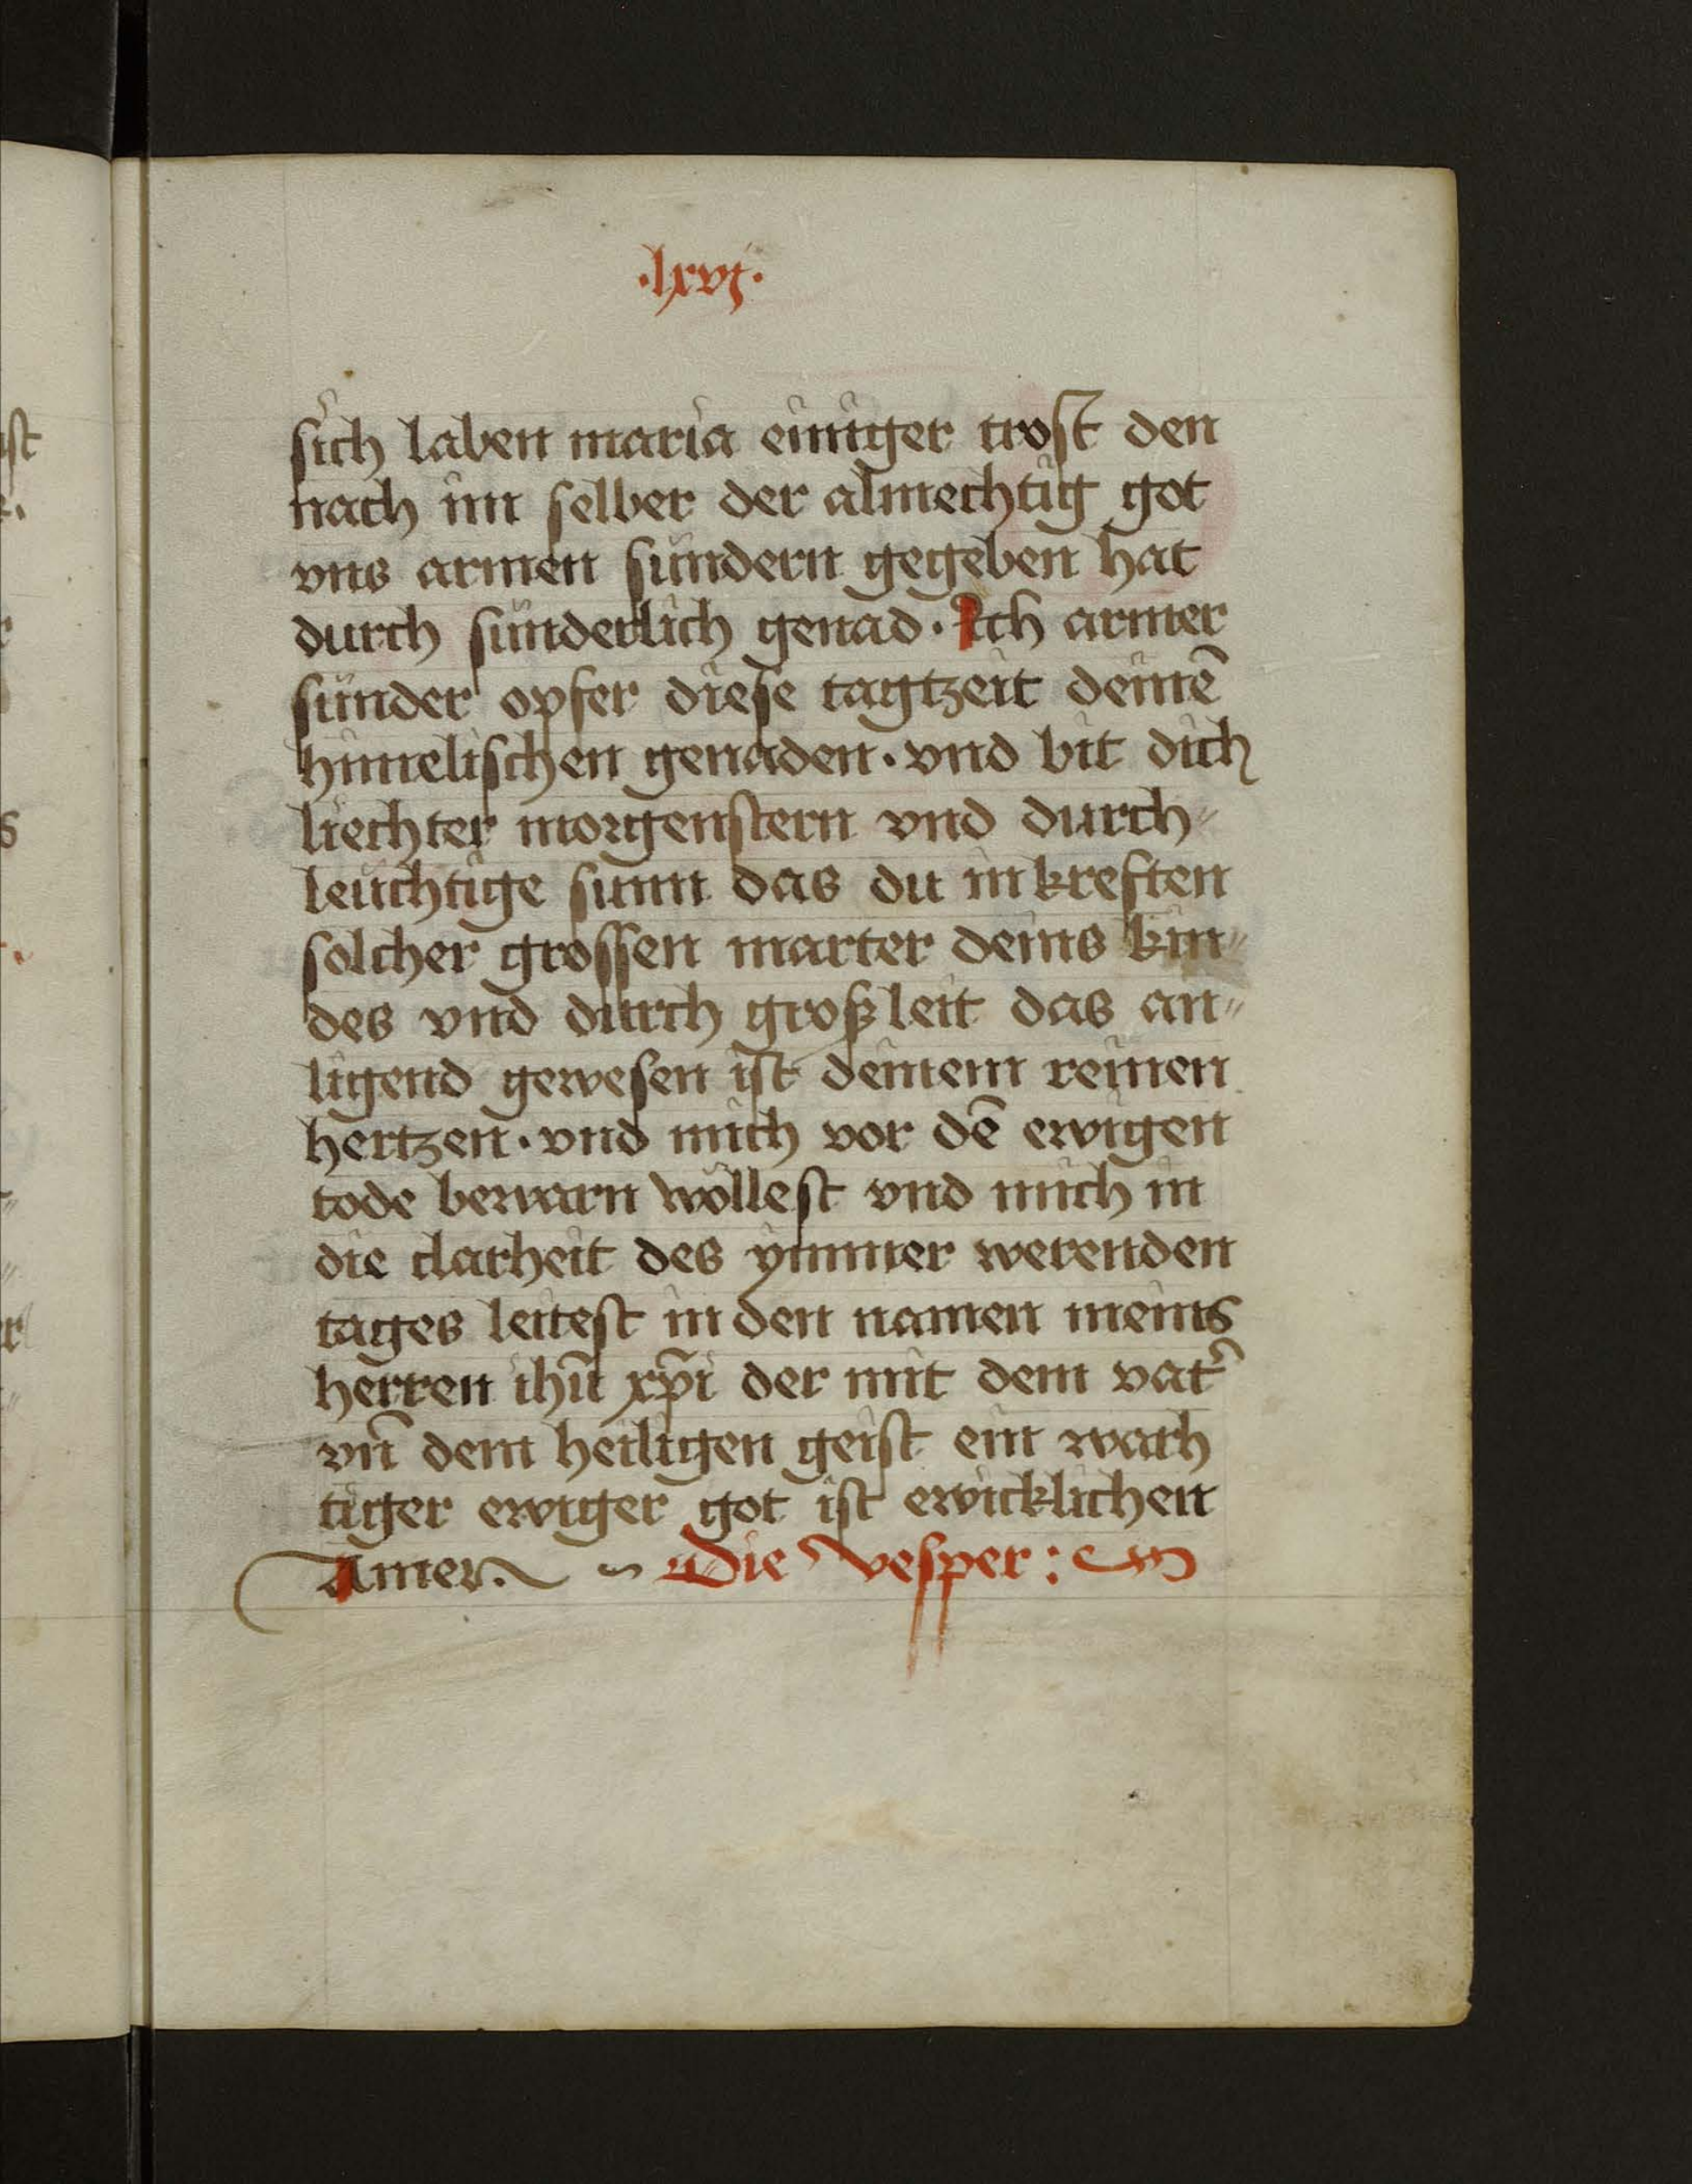 ·lxvj·
sich laben maria einiger trost den
nach im selber der almechtig got
vns armen sündern gegeben hat
durch sünderlich genad · Ich armer
sünder opfer diese tagtzeit deinē
himelischen genaden · vnd bit dich
liechter morgenstern vnd durch"
leüchtige sunn das du in kreften
solcher grossen marter deins kin"
des vnd durch groß leit das an"
ligend gewesen ist deinem reinen
hertzen · vnd mich vor dē ewigen
tode bewarn wöllest vnd mich in
die clarheit des ymmer werenden
tages leitest in den namen meins
herren ihū xp̄i der mit dem vat᾽
vn̄ dem heiligen geist ein warh
tiger ewiger got ist ewicklichen
Amen. Die vesper :